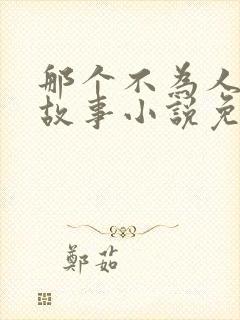 那个不为人
故事小説免
鄭茹